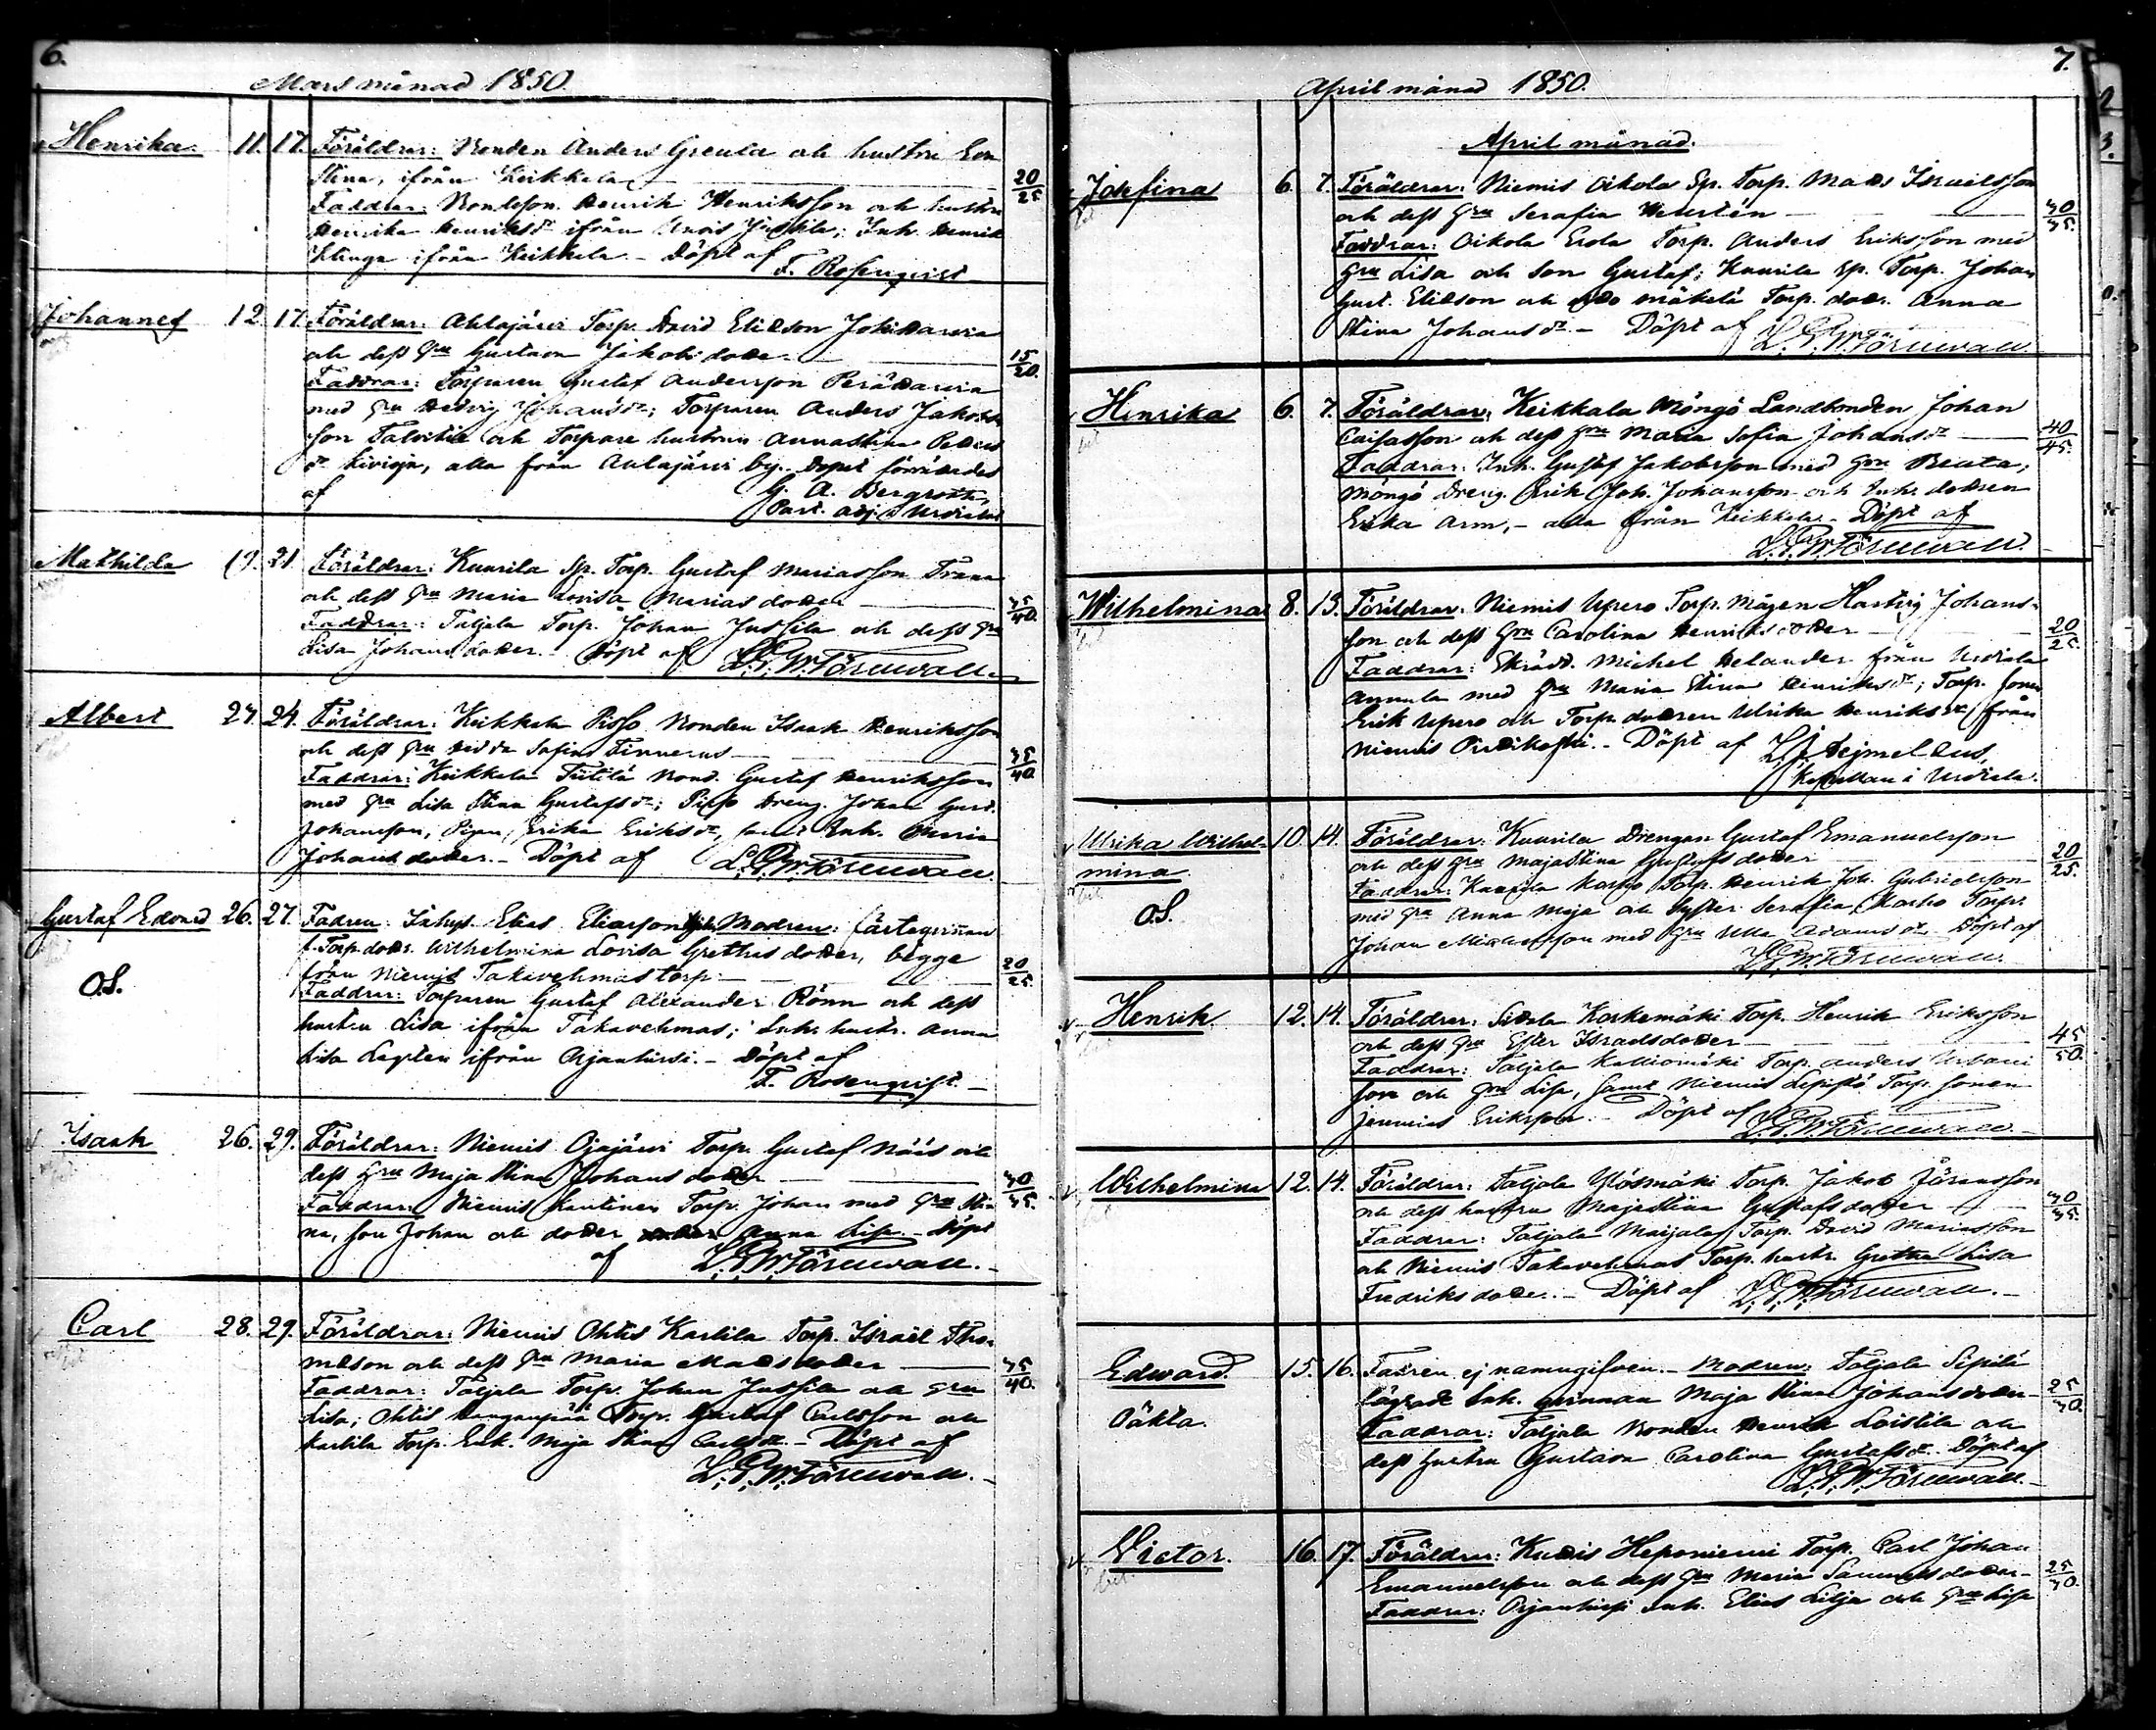 6.
Mars månad 1850.
Henrika. 11. 17. Föräldrar: Bonden Anders Greula och hustru Eva
Stina, ifrån Keikkala 20/25
Faddrar: Bondeson Henrik Henriksson och hustru
Henrika Henriksdr ifrån Jussila; Inh. Henrik
Klinga ifrån Keikkala - Döpt af
F. Rosenqvist
Johannes 12. 17. Föräldrar: Ahlajärvi Torp. David Eliæson
och dess hru Gustava Jakobsdoter. 15/20.
Faddrar: Torparen Gustaf Andersson Perädarvia
med hru Hedvig Johansdr; Torparen Anders Jakobs
son Talvitie och Torpare hustrun Annastina
dr Kivioja, alla från Ahlajärvi by. Dopet förrättades
af G. A. Bergroth,
Past. adj. i Urdiala
Mathilda 19. 21. Föräldrar: Kuurila Sp. Torp. Gustaf Mariasson Trana
och dess hru Maria Lovisa Mariasdoter 35/40.
Faddrar: Taljala Torp. Johan Jussila och dess hru
Lisa Johansdoter. Döpt af L. G. W. Törnwall.
Albert 24. 24. Föräldrar: Keikkala Pisso Bonden Isaak Henriksson
och dess hru Hedda Sofia 35/40.
Faddrar: Keikkala Tiitilä Bond. Gustaf Henriksson
med hru Lisa Stina Gustafsdr; Pisso Dreng. Johan Gust.
Johansson, Pigan Erika Eriksdr, samt Inh. Maria
Johansdoter. - Döpt af L. G. W. Törnwall.
Gustaf Edvard 26. 27. Fadren: Inhys. Elias Eliasson Modren: Fästeqvinnan
f. Torp. dotr. Wilhelmina Lovisa Grethasdoter, begge
från Niemis Takavehmas torp. 20/25
O.S.
Faddrar: Torparen Gustaf Alexander Rönn och dess
hustru Lisa ifrån Takavehmas; Inh. hustr. Anna
Lisa ifrån Arjanhirsi. - Döpt af
F. Rosenqvist. -
Isaak 26. 29. Föräldrar: Niemis Ojajärvi Torp. Gustaf Näis och
dess hru Maja Stina Johansdoter 30/35.
Faddrar: Niemis Torp. Johan med hru Sti-
na, son Johan och doter Anna Lisa. - Döpt
af L. G. W. Törnwall. -
Carl 28. 29. Föräldrar: Niemis Ohtis Karlila Torp. Israël Tho-
mæson och dess hru Maria Madsdoter 35/40.
Faddrar: Taljala Torp. Johan Jussila och hru
Lisa; Ohtis Torp. Gustaf Carlsson och
Karlila Torp. Enk. Maja Stina Carlsdr. - Döpt af
L. G. W. Törnwall. -
7.
April månad 1850.
April månad.
Josefina 6. 7. Föräldrar: Niemis Oikola Sp. Torp. Mads Israelsson
och dess hru Serafia 30/35.
Faddrar: Oikola Erola Torp. Anders Eriksson med
hru Lisa och son Gustaf; Kuurila Sp. Torp. Johan
Gust. Eliæson och Mäkelä Torp. dotr. Anna
Stina Johansdr. - Döpt af L. G. W. Törnwall.
Henrika 6. 7. Föräldrar: Keikkala Möngö Landbonden Johan
Caisasson och dess hru Maria Sofia Johansdr 40/45.
Faddrar: Inh. Gustaf Jakobsson med hru Beata;
Möngö Dreng. Erik Joh. Johansson och Inh. dotren
Erika Arm, - alla från Keikkala - Döpt af
L. G. W. Törnwall.
Wilhelmina 8. 13. Föräldrar: Niemis Upero Torp. Mågen Hartvig Johans-
son och dess hru Carolina Henriksdoter 20/25.
Faddrar: Skrädd. Michel Helander från Urdiala
Annula med hru Maria Stina Henriksdr; Torp. sonen
Erik Upero och Torp. dotren Ulrika Henriksdr från
Niemis. - Döpt af L. J. Hejmelæus,
Kapellan i Urdiala.
Ulrika Wilhel-
mina. 10. 14. Föräldrar: Kuurila Drengen Gustaf Emanuelsson
och dess hru Maja Stina Gustafsdoter 20/25.
O.S.
Faddrar: Torp. Henrik Joh. Gabrielsson
med hru Anna Maja och syster Serafia, Karho Torp.
Johan med hru Ulla Adamsdr. Döpt af
L. G. W. Törnwall.
Henrik. 12. 14. Föräldrar: Koskemäki Torp. Henrik Eriksson
och dess hru Ester Israelsdoter 45/50.
Faddrar: Taljala Kalliomäki Torp. Anders Urbani
son och hru Lisa, samt Niemis Lepistö Torp. sonen
Jeremias Eriksson. - Döpt af L. G. W. Törnwall. -
Wilhelmina 12. 14. Föräldrar: Taljala Torp. Jakob Göransson
och dess hustru Maja Stina Gustafsdoter 30/35.
Faddrar: Taljala Maijala Torp. David Mariasson
och Niemis Takavehmas Torp. hustr. Gretha Lisa
Fredriksdoter. - Döpt af L. G. W. Törnwall. -
Edward. 15. 16. Fadren ej namngifven. - Modren: Taljala Sipilä
lägrade Inh. qvinnan Maja Stina Johansdoter - 25/30.
Oäkta.
Faddrar: Taljala Bonden Henrik Laistila och
dess hustru Gustava Carolina Gustafsdr. Döpt af
L. G. W. Törnwall. -
Victor. 16. 17. Föräldrar: Kudis Heponiemi Torp. Carl Johan
Emanuelsson och dess hru Maria Samuelsdoter - 25/30.
Faddrar: Arjanhirsi Inh. Elias Lilja och hru Lisa